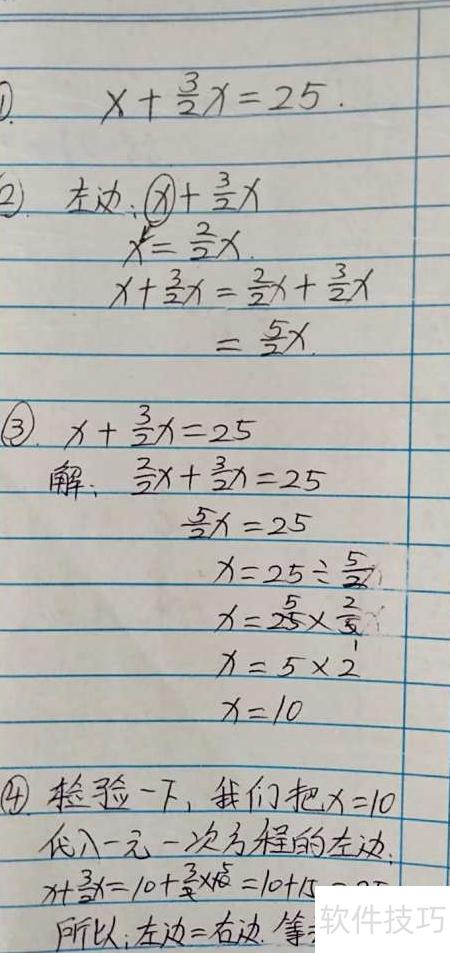 ① x + 3/2 x = 25.
② 左边: x + 3/2 x
x = 2/2 x.
x + 3/2 x = 2/2 x + 3/2 x
= 5/2 x.
③. x + 3/2 x = 25
解: 2/2 x + 3/2 x = 25
5/2 x = 25
x = 25 ÷ 5/2
x = 25 × 2/5
5 1
x = 5 × 2
x = 10
④ 检验一下, 我们把 x = 10
代入一元一次方程的左边:
x + 3/2 x = 10 + 3/2 × 10 = 10 + 15 = 25
所以: 左边 = 右边. 等
软件技巧